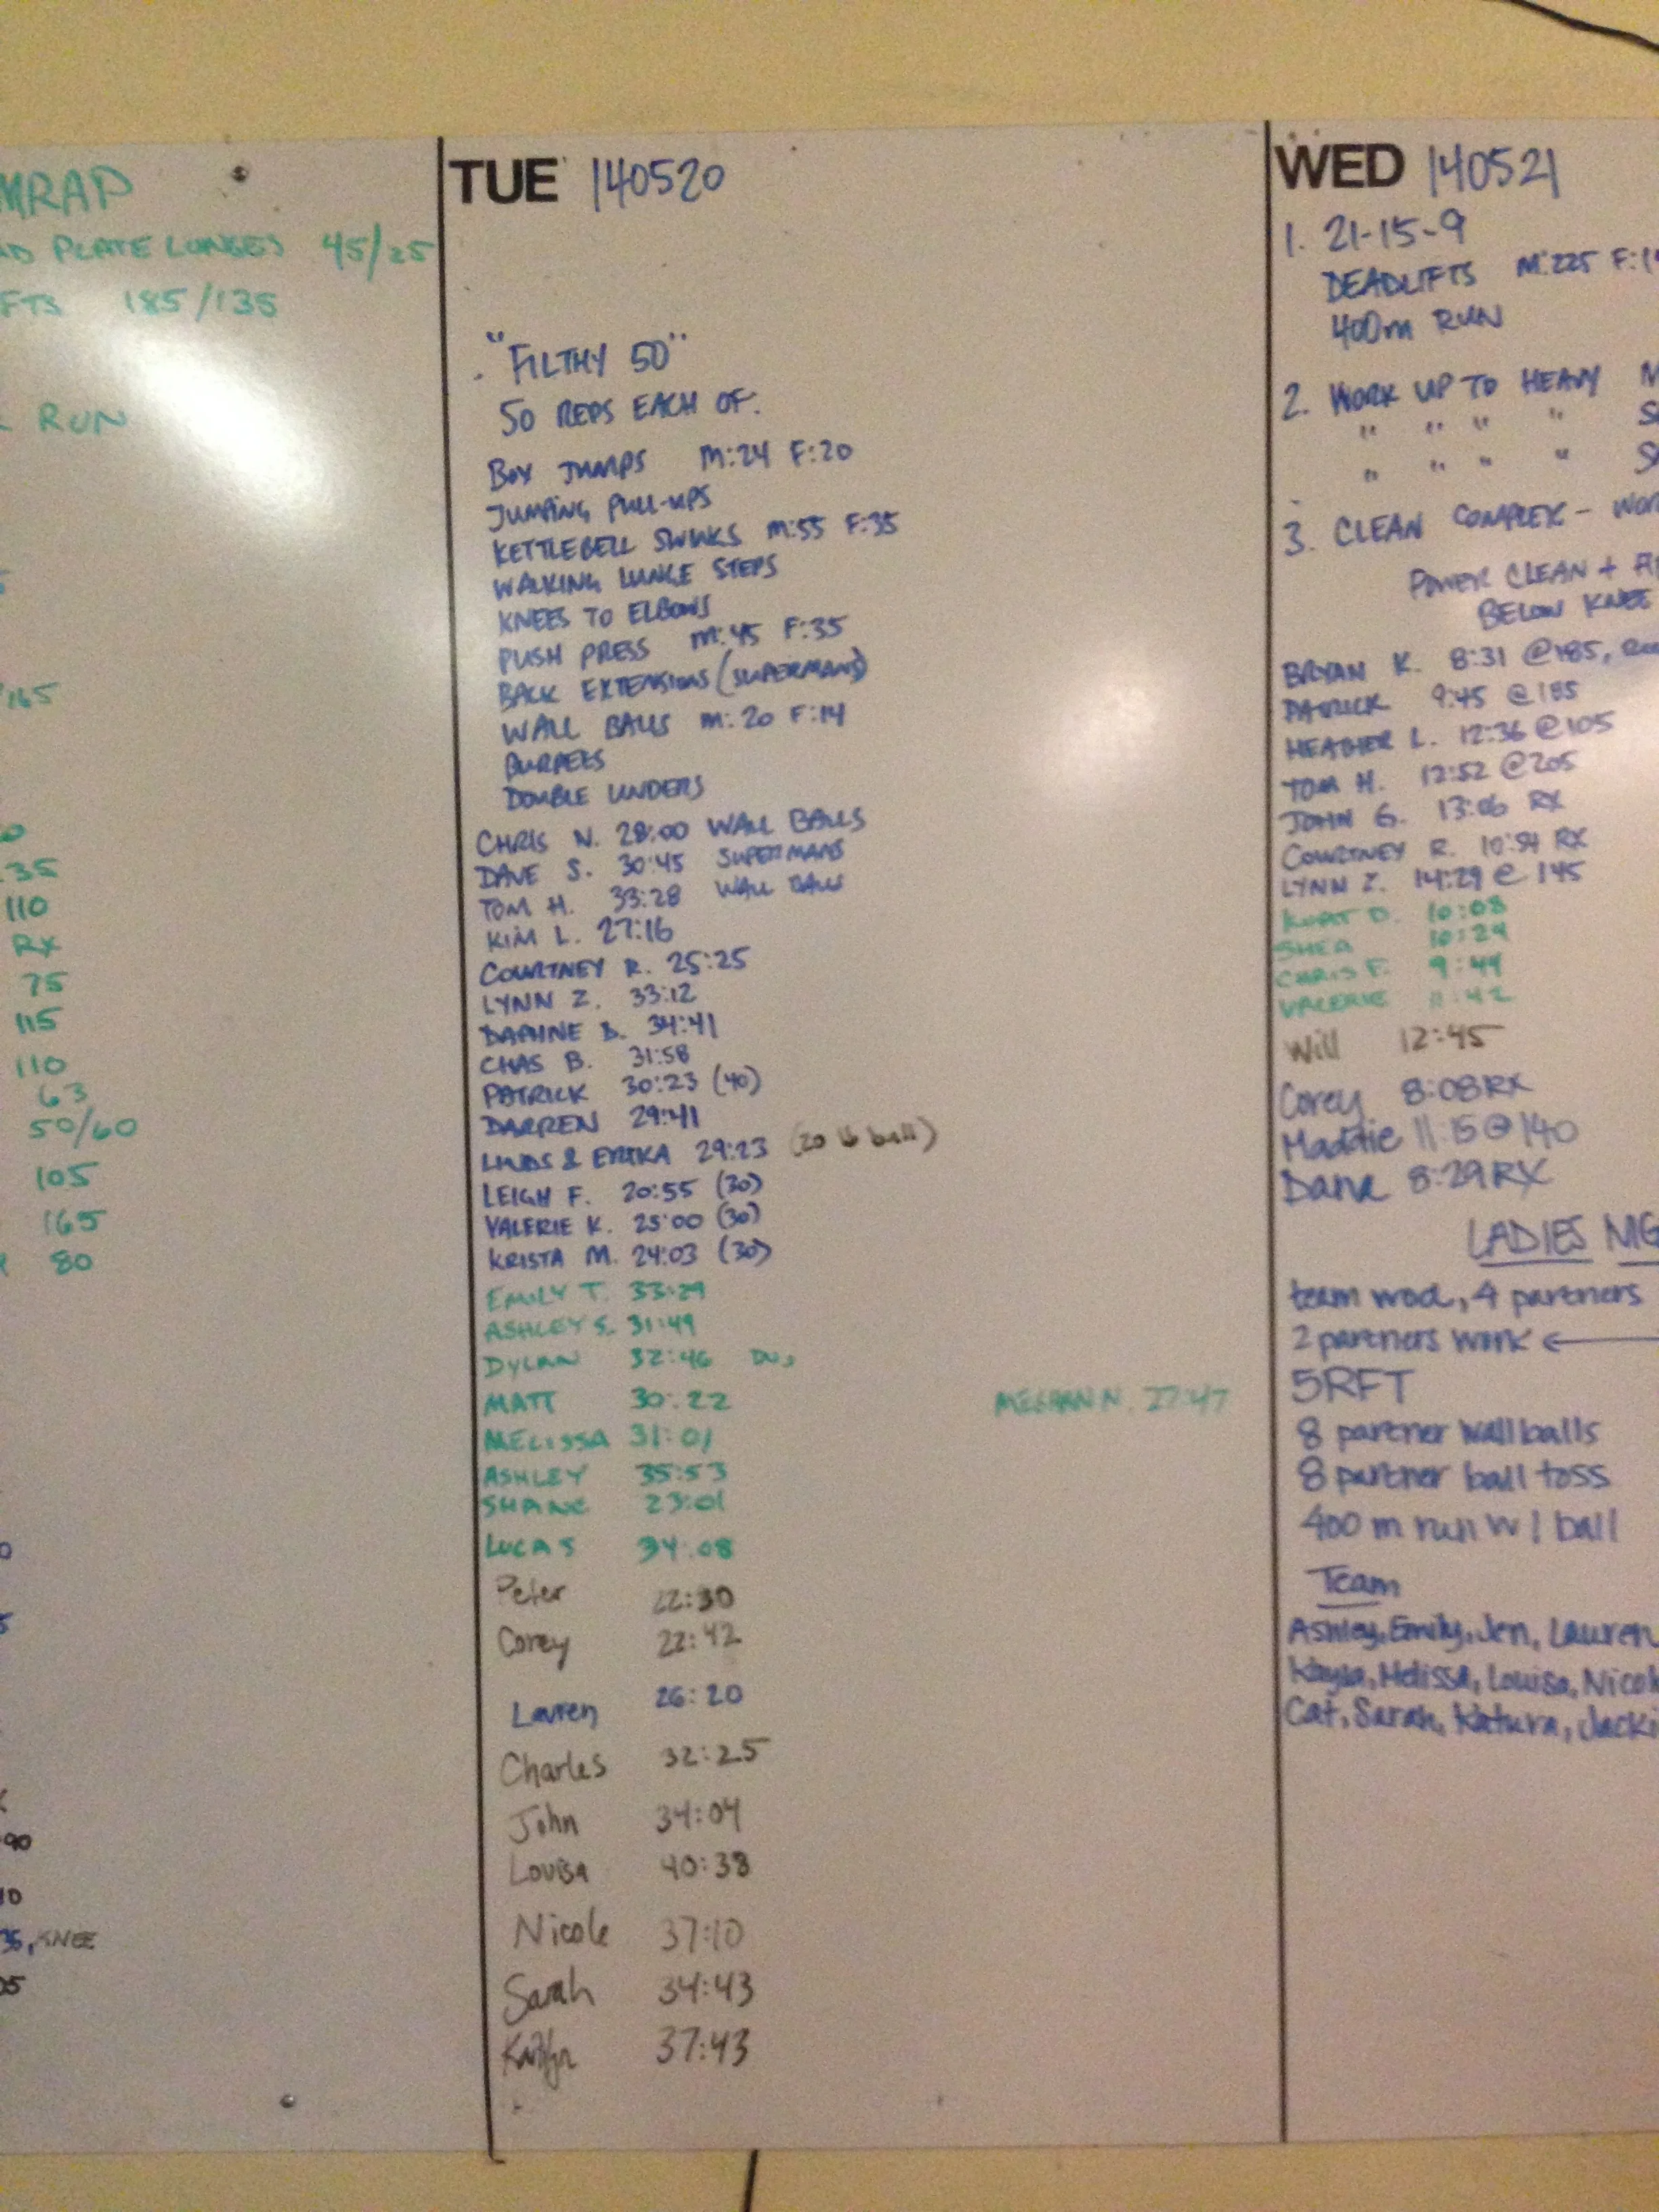 MRAP
PLATE LUNGES 45/25
FTS 185/135
RUN
165
35
110
RX
75
115
110
63
50/60
105
165
80
90
10
35, KNEE
05
TUE 140520
"FILTHY 50"
50 REPS EACH OF:
BOX JUMPS M:24 F:20
JUMPING PULL-UPS
KETTLEBELL SWINGS M:55 F:35
WALKING LUNGE STEPS
KNEES TO ELBOWS
PUSH PRESS M:45 F:35
BACK EXTENSIONS (SUPERMANS)
WALL BALLS M:20 F:14
BURPEES
DOUBLE UNDERS
CHRIS N. 28:00 WALL BALLS
DAVE S. 30:45 SUPERMANS
TOM H. 33:28 WALL BALLS
KIM L. 27:16
COURTNEY R. 25:25
LYNN Z. 33:12
DAPHNE B. 34:41
CHAS B. 31:58
PATRICK 30:23 (40)
DARREN 29:41
LINDS & ERIKA 29:23 (20 lb ball)
LEIGH F. 20:55 (30)
VALERIE K. 25:00 (30)
KRISTA M. 24:03 (30)
EMILY T. 33:29
ASHLEY S. 31:49
DYLAN 32:46 DUs
MATT 30:22
MEGHAN N. 27:47
MELISSA 31:01
ASHLEY 35:53
SHANE 23:01
LUCAS 34:08
Peter 22:30
Corey 22:42
Lauren 26:20
Charles 32:25
John 34:04
Louisa 40:38
Nicole 37:10
Sarah 34:43
Kaitlyn 37:43
WED 140521
1. 21-15-9
DEADLIFTS M:225 F:1
400m RUN
2. WORK UP TO HEAVY
" " " "
" " " "
3. CLEAN COMPLEX - WOR
POWER CLEAN +
BELOW KNEE
BRYAN K. 8:31 @185,
PATRICK 9:45 @185
HEATHER L. 12:36 @105
TOM H. 12:52 @205
JOHN G. 13:06 RX
COURTNEY R. 10:54 RX
LYNN Z. 14:29 @ 145
KURT D. 10:08
SHEA 10:29
CHRIS F. 9:44
VALERIE 11:42
Will 12:45
Corey 8:08 RX
Maddie 11:15 @ 140
Dana 8:29 RX
LADIES NIG
team wod, 4 partners
2 partners work ←
5RFT
8 partner wallballs
8 partner ball toss
400 m run w/ ball
Team
Ashley, Emily, Jen, Lauren
Kayla, Melissa, Louisa, Nicol
Cat, Sarah, Katura, Jacki